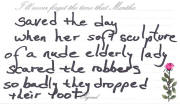 I'll never forget the time that Martha
saved the day
when her soft sculpture
of a nude elderly lady
scared the robbers
so badly they dropped
their loot